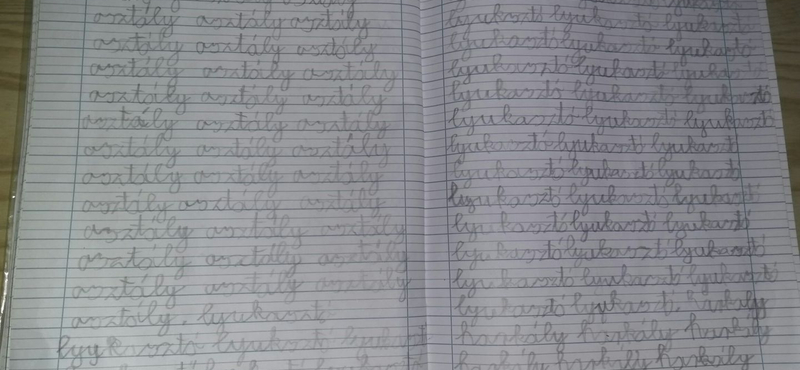 osztály osztály osztály
osztály osztály osztály
osztály osztály osztály
osztály osztály osztály
osztály osztály osztály
osztály osztály osztály
osztály osztály osztály
osztály osztály osztály
osztály osztály osztály
osztály osztály osztály
osztály osztály osztály
osztály, lyukaszt
lyukasztó lyukasztó lyukaszt
lyukasztó lyukasztó lyukasztó
lyukasztó lyukasztó lyukasztó
lyukasztó lyukasztó lyukasztó
lyukasztó lyukasztó lyukasztó
lyukasztó lyukasztó lyukasztó
lyukasztó lyukasztó lyukaszt
lyukasztó lyukasztó lyukaszt
lyukasztó lyukasztó lyukasztó
lyukasztó lyukasztó lyukasztó
lyukasztó lyukasztó lyukasztó
lyukasztó lyukasztó lyukasztó
lyukasztó lyukaszt, harkály
harkály harkály harkály
harkály harkály harkály